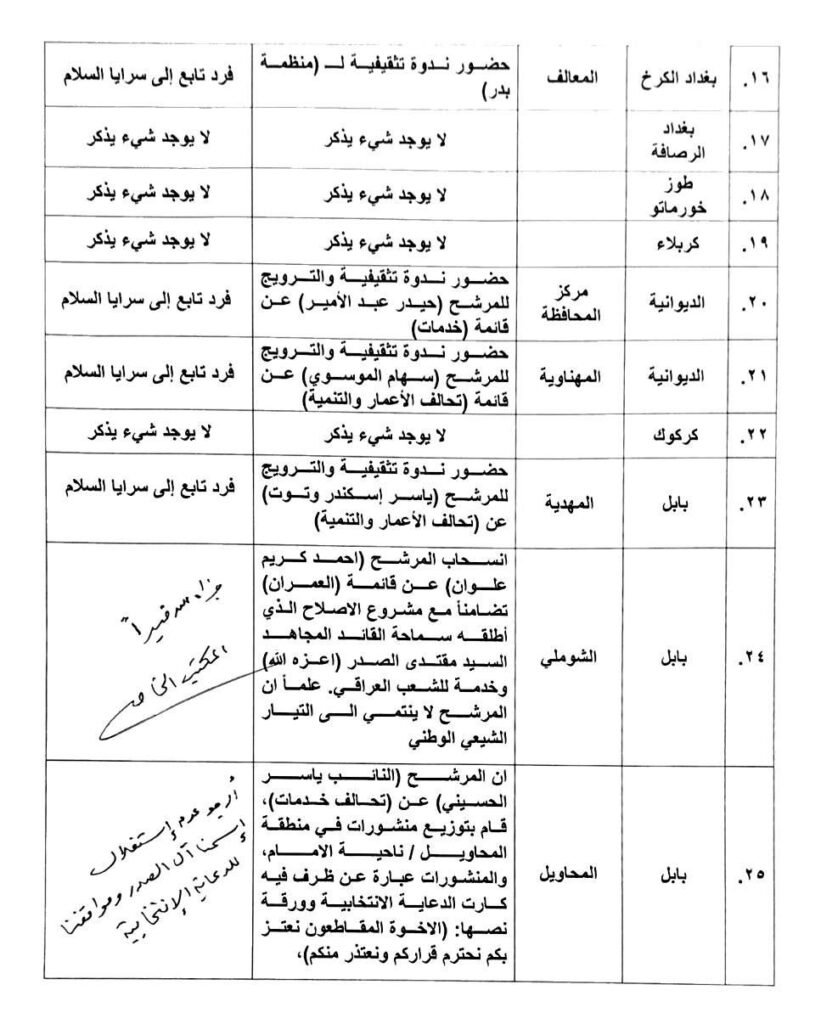 ١٦. بغداد الكرخ المعالف حضور ندوة تثقيفية لـ (منظمة فرد تابع إلى سرايا السلام
بدر)
١٧. بغداد الرصافة لا يوجد شيء يذكر لا يوجد شيء يذكر
١٨. طوز خورماتو لا يوجد شيء يذكر لا يوجد شيء يذكر
١٩. كربلاء لا يوجد شيء يذكر لا يوجد شيء يذكر
٢٠. الديوانية مركز المحافظة
حضور ندوة تثقيفية والترويج
للمرشح (حيدر عبد الأمير) عن
قائمة (خدمات)
فرد تابع إلى سرايا السلام
٢١. الديوانية المهناوية
حضور ندوة تثقيفية والترويج
للمرشح (سهام الموسوي) عن
قائمة (تحالف الأعمار والتنمية)
فرد تابع إلى سرايا السلام
٢٢. كركوك لا يوجد شيء يذكر لا يوجد شيء يذكر
٢٣. بابل المهدية
حضور ندوة تثقيفية والترويج
للمرشح (ياسر إسكندر وتوت)
عن (تحالف الأعمار والتنمية)
فرد تابع إلى سرايا السلام
٢٤. بابل الشوملي
انسحاب المرشح (احمد كريم
علوان) عن قائمة (العمران)
تضامنأ مع مشروع الاصلاح الذي
أطلقه سماحة القائد المجاهد
السيد مقتدى الصدر (اعزه الله)
وخدمة للشعب العراقي. علمأ ان
المرشح لا ينتمي الى التيار
الشيعي الوطني
جزاه الله خيراً
المكتب الخاص
٢٥. بابل المحاويل
ان المرشح (النائب ياسر
الحسيني) عن (تحالف خدمات)،
قام بتوزيع منشورات في منطقة
المحاويل / ناحية الامام،
والمنشورات عبارة عن ظرف فيه
كارت الدعاية الانتخابية وورقة
نصها: (الاخوة المقاطعون نعتز
بكم نحترم قراركم ونعتذر منكم)،
أرجو عدم إستغلال
إسمنا آل الصدر ومواقفنا
للدعاية الإنتخابية